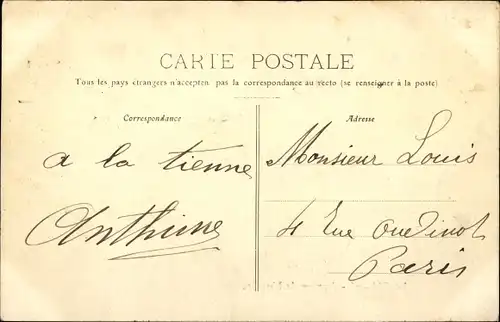 CARTE POSTALE
Tous les pays étrangers n'accepten pas la correspondance au recto (se renseigner à la poste)
Correspondance
a la tienne
Anthime
Adresse
Monsieur Louis
4 Rue Oudinot
Paris